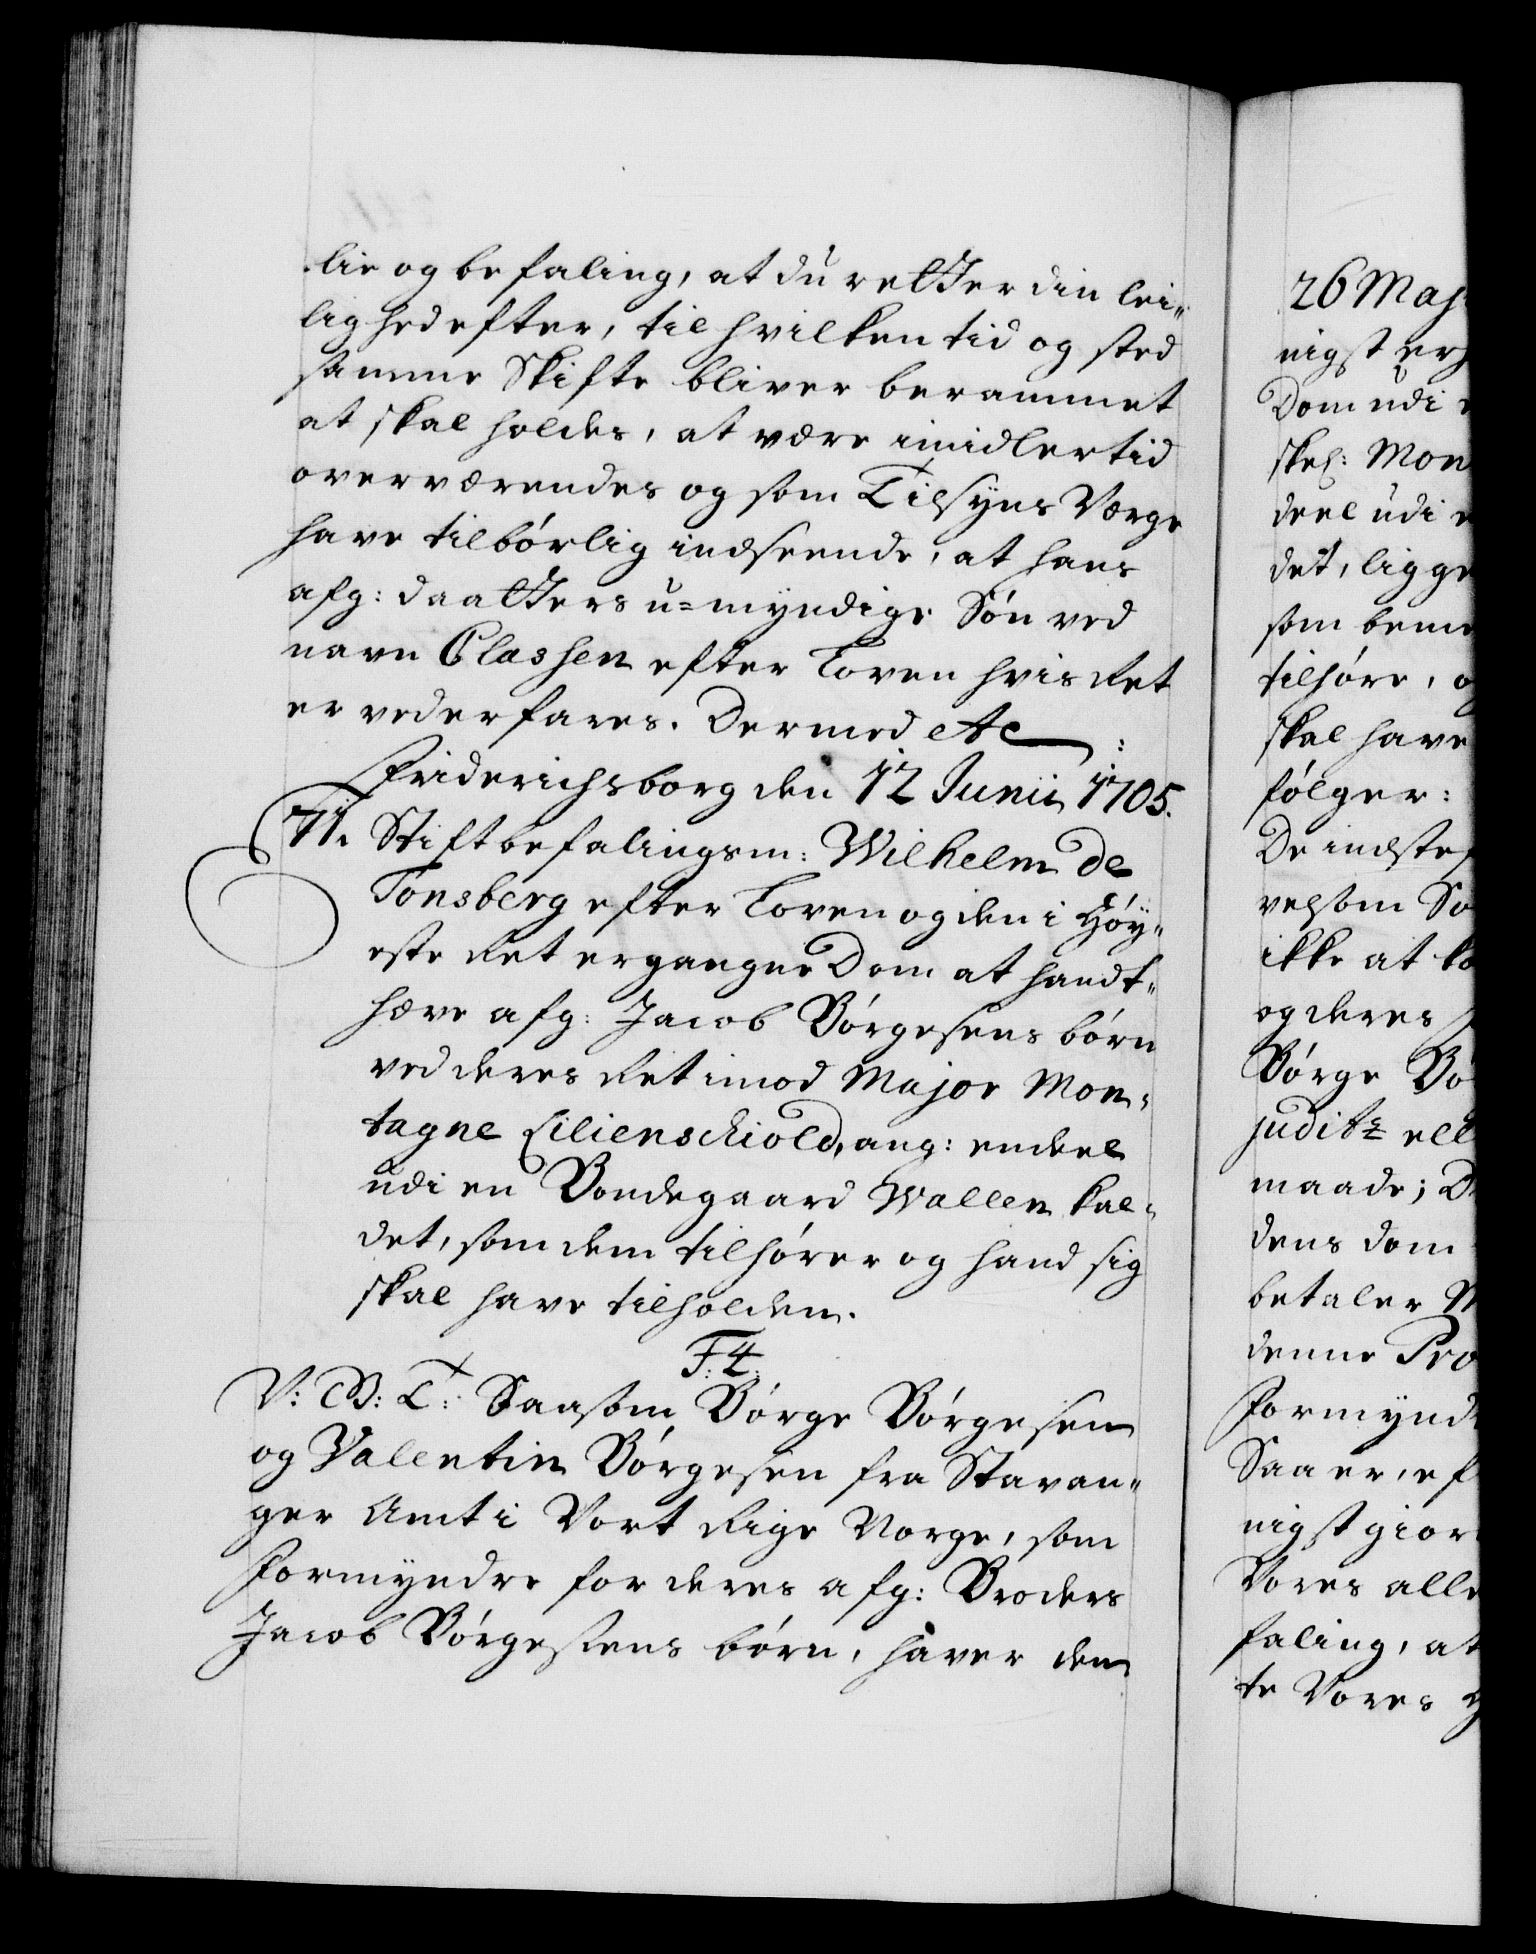 lie og befaling, at du retter din lei„
lighed efter, til hvilken tid og sted
samme Skifte bliver berammet
at skal holdes, at være imidlertid
overværendes og som Tilsyns Værge
have tilbørlig indseende, at hans
afg: daatters u=myndige Søn ved
navn Classen efter Loven hvis Ret
er vederfares. Dermed etc:
Friderichsborg den 12 Junii 1705.
71. Stiftbefalingsm: Wilhelm de
Tonsberg efter Loven og den i Høy„
este Ret ergangne Dom at handt„
hæve afg: Jacob Børgesens børn
ved deres Ret imod Major Mon„
tagne Lilienschiold, ang: endeel
udi en Bondegaard Wallen kal„
det, som dem tilhører og hand sig
skal have tilholden.
F: 4.
V: G: T: Saasom Børge Børgesen
og Valentin Børgesen fra Stavan„
ger Amt i Vort Rige Norge, som
Formyndre for deres afg: Broders
Jacob Børgesens børn, haver den
26 Maj
nigst
Dom udi
Mon
deel udi
det, ligge
som
tilhøre,
skal have
følger:
De
velsom
ikke at
og deres
Børge
maade;
dens dom
betaler
denne
Saa er,
nigst
Vores
faling, at
te Vores